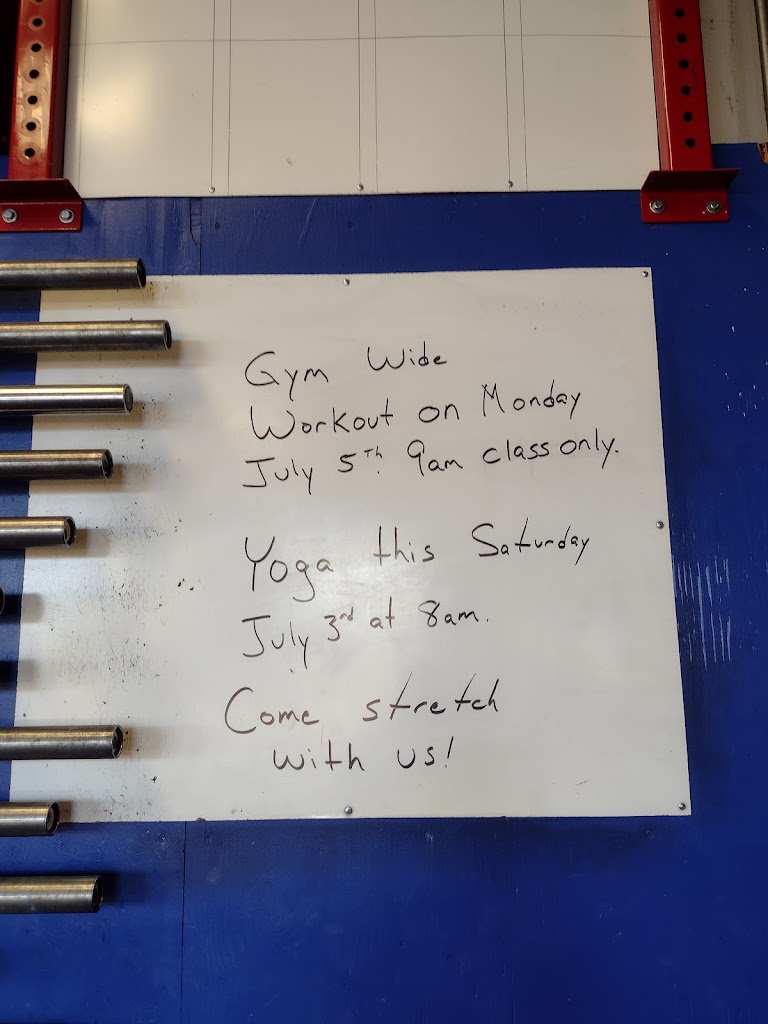 Gym Wide
Workout on Monday
July 5th. 9am class only.
Yoga this Saturday
July 3rd at 8am.
Come stretch
with us!